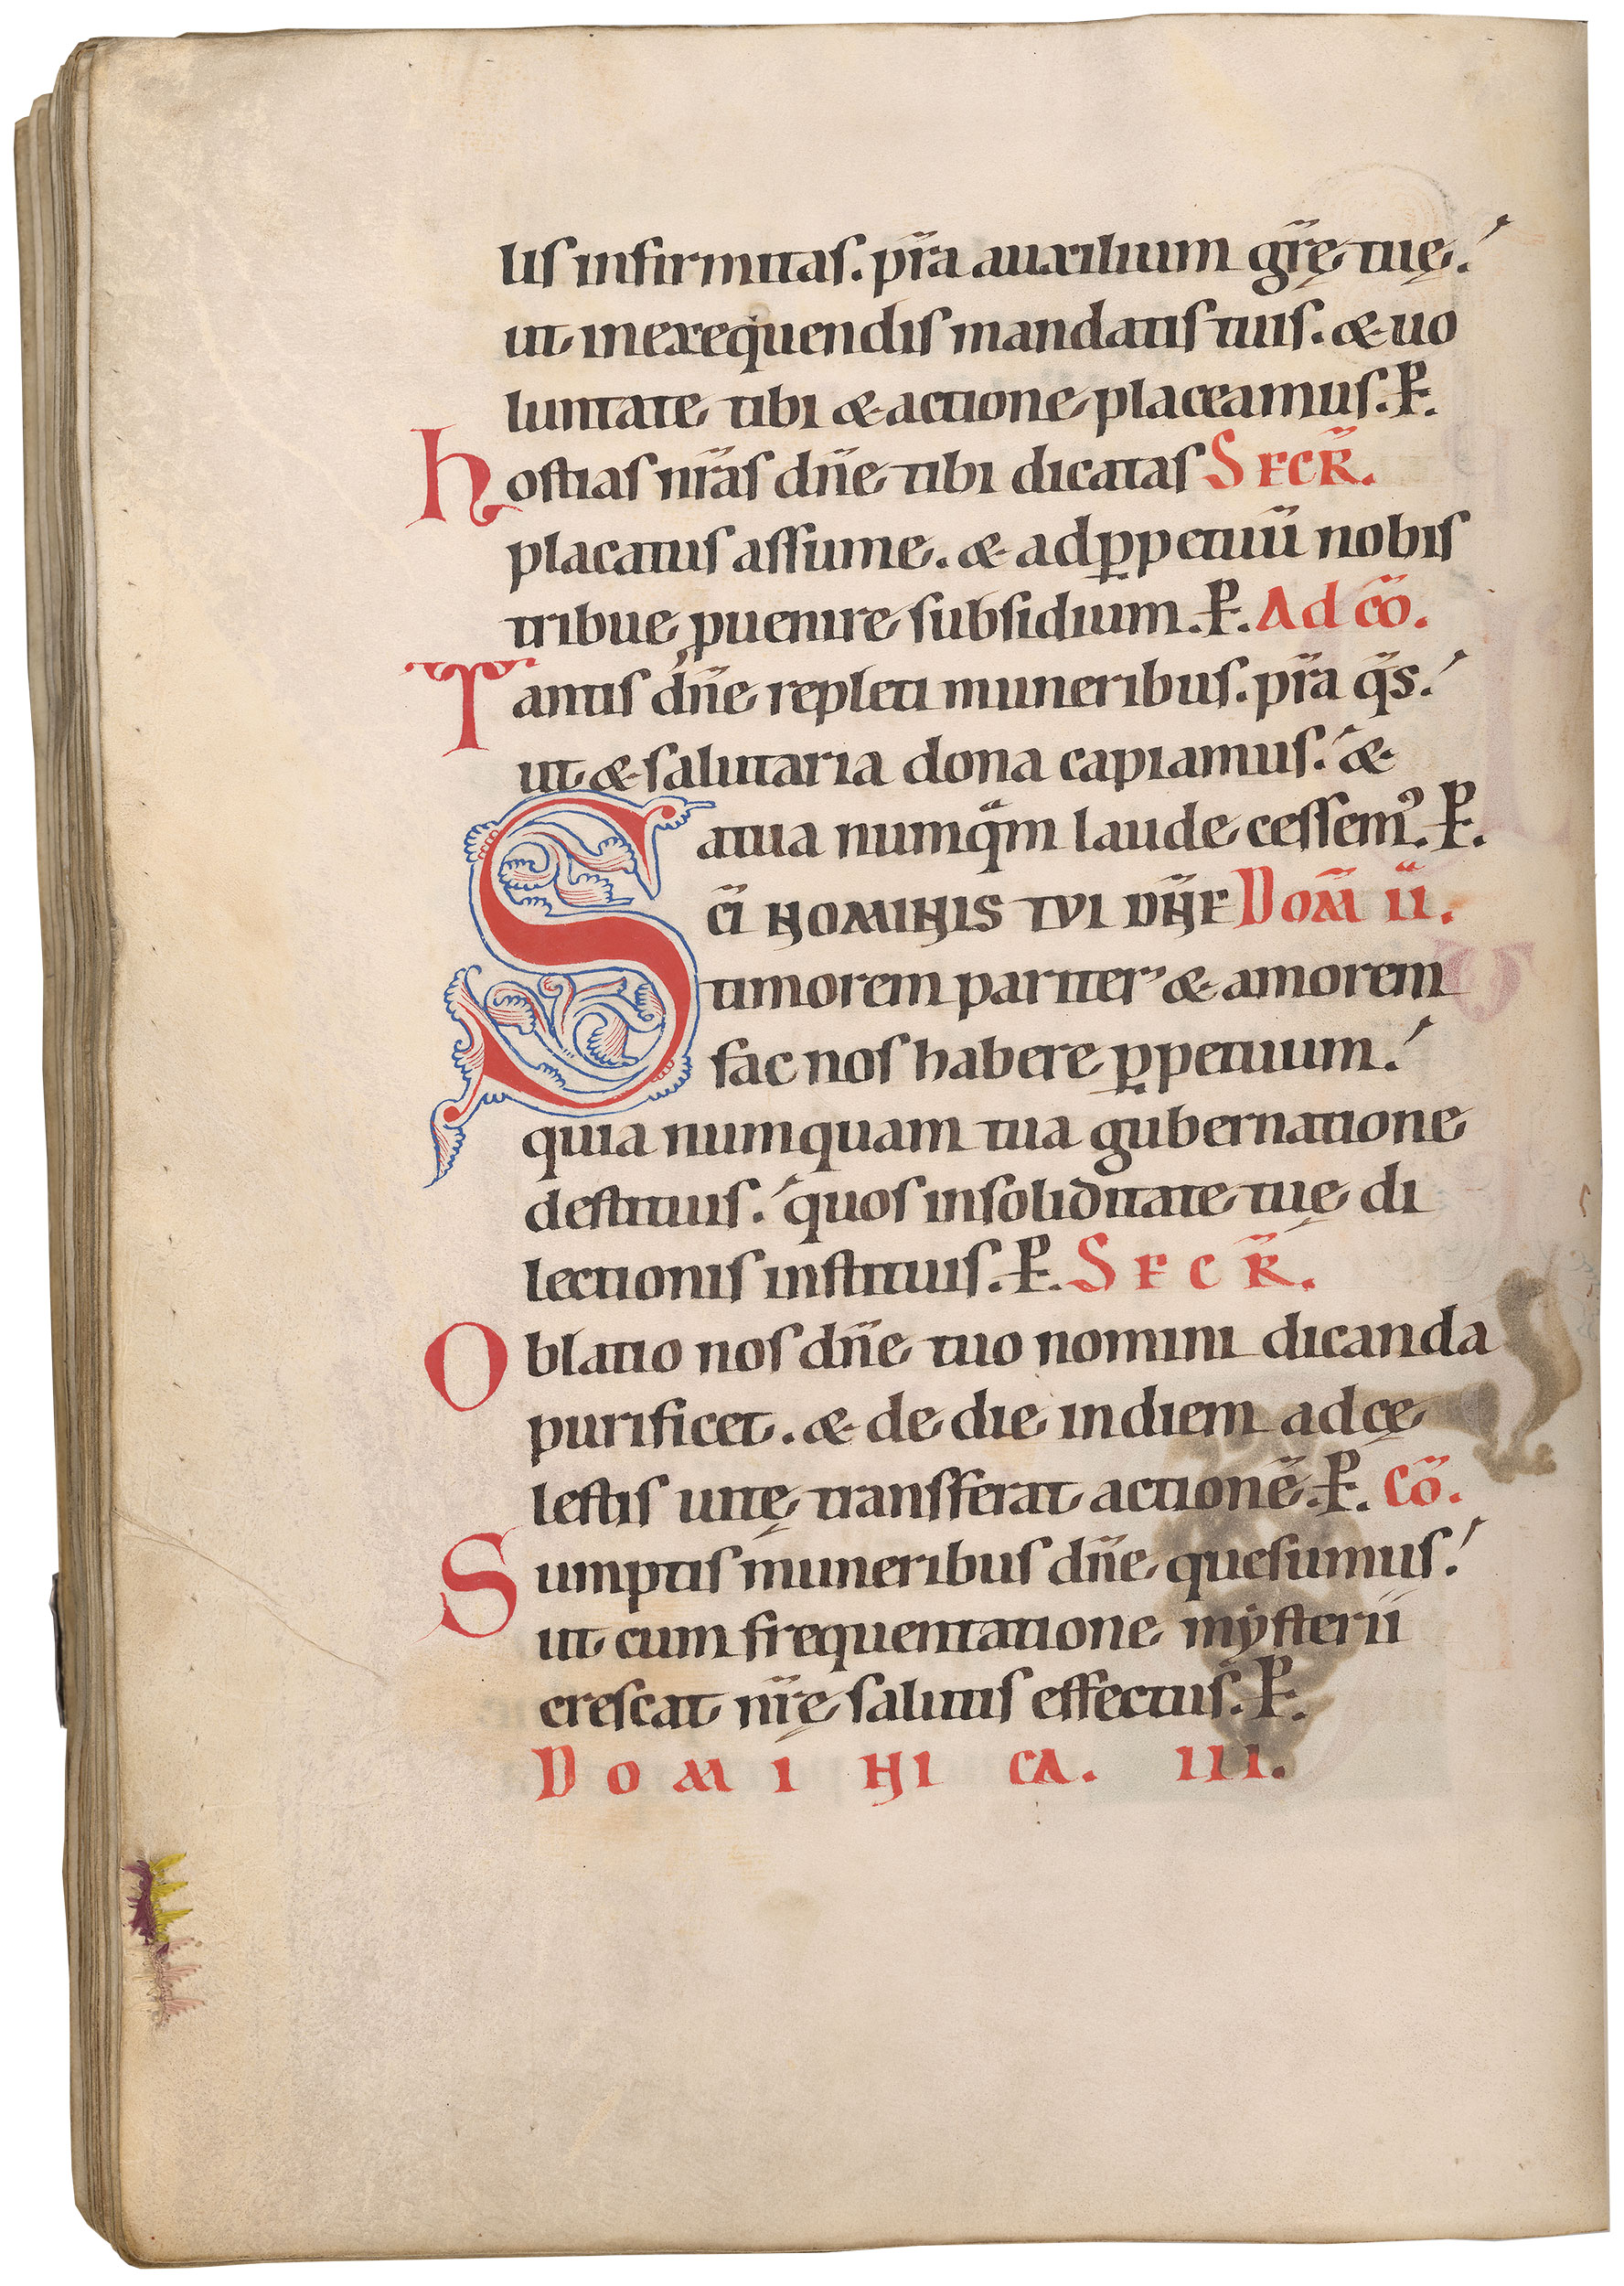 lis infirmitas. pr̃a auxilium gr̃ę tuę.
ut in exequendis mandatis tuis. & uo
luntate tibi & actione placeamus. P.
Hostias nr̃as dñe tibi dicatas SECR̃.
placatus assume. & ad ꝑpetuũ nobis
tribue ꝓuenire subsidium. P. Ad cõ.
Tantis dñe repleti muneribus. pr̃a q̃s.
ut & salutaria dona capiamus. &
a tua numq̃m laude cessemꝰ. P.
SCĨ NOMINIS TVI DÑE DOM̃ II.
timorem pariter & amorem
fac nos habere ꝑpetuum.
quia numquam tua gubernatione
destituis. quos in soliditate tuę di
lectionis instituis. P. SECR̃.
Oblatio nos dñe tuo nomini dicanda
purificet. & de die in diem ad cę
lestis uitę transferat actionẽ. P. Cõ.
Sumptis muneribus dñe quesumus.
ut cum frequentatione mẏsterii
crescat nr̃ę salutis effectus. P.
DOMINICA. III.